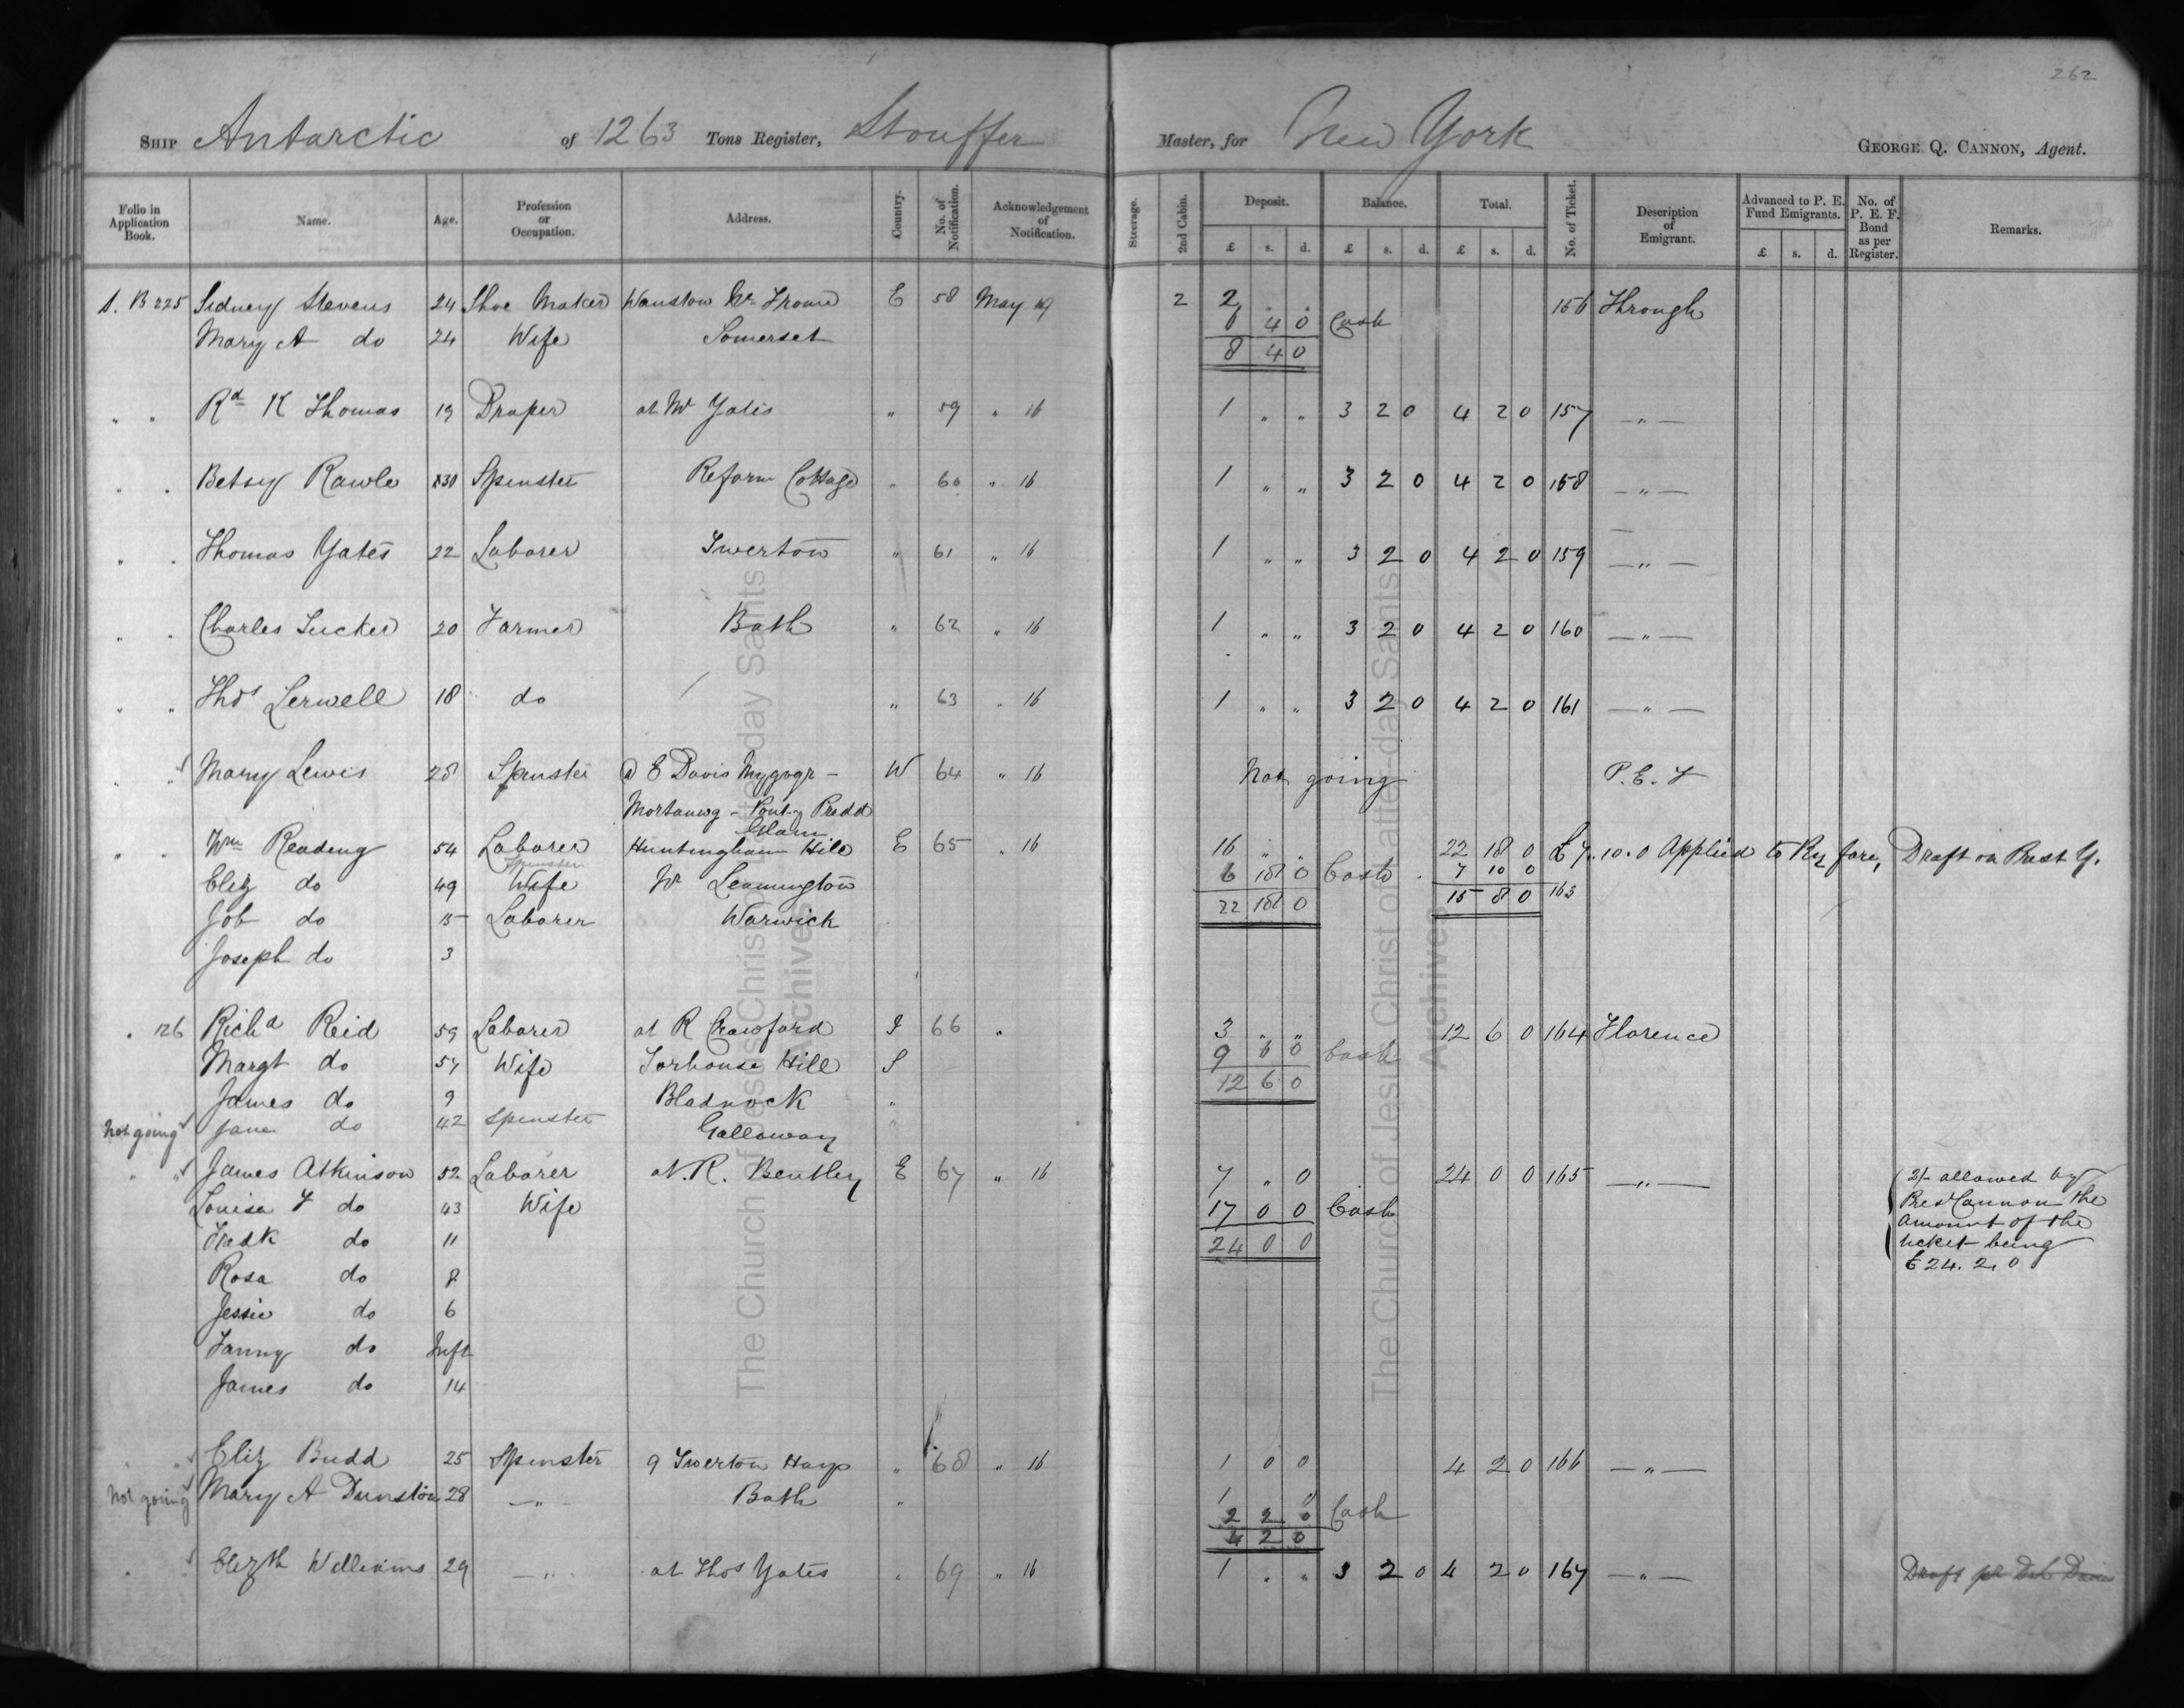 262
SHIP Antarctic of 1263 Tons Register, Stouffer Master, for New York GEORGE Q. CANNON, Agent.
Folio in Application Book. Name. Age. Profession or Occupation. Address. Country. No. of Notification. Acknowledgement of Notification. Steerage. 2nd Cabin. Deposit. Balance. Total. No. of Ticket. Description of Emigrant. Advanced to P. E. Fund Emigrants. No. of P. E. F. Bond as per Register. Remarks.
£ s. d. £ s. d. £ s. d. £ s. d.
B 225 Sidney Stevens 24 Shoe Maker Wanstow Nr Frome E 58 May 19 2 2 . . 156 Through
6 4 0 Cash
Mary A do 24 Wife Somerset 8 4 0
" " Rd K Thomas 19 Draper at Mr Yates " 59 " 16 1 " " 3 2 0 4 2 0 157 — " —
" " Betsy Rawle 30 Spinster Reform Cottage " 60 " 16 1 " " 3 2 0 4 2 0 158 — " —
" " Thomas Yates 22 Laborer Twerton " 61 " 16 1 " " 3 2 0 4 2 0 159 — " —
" " Charles Tucker 20 Farmer Bath " 62 " 16 1 " " 3 2 0 4 2 0 160 — " —
" " Thos Lerwell 18 do " 63 " 16 1 " " 3 2 0 4 2 0 161 — " —
" " Mary Lewis 28 Spinster E Davis W 64 " 16 Not going P. E. F
Pont y Predd
Glam
" " Wm Reading 54 Laborer Huntingham Hill E 65 " 16 16 " . 22 18 0 £7.10.0 Applied to Ry fare, Draft on Prest Y.
Spinster
Eliz do 49 Wife Nr Leamington 6 18 0 Cash 7 10 0
Job do 15 Laborer Warwick 22 18 0 15 8 0 163
Joseph do 3
" 126 Richd Reid 59 Laborer at R Crawford I 66 " 3 " " 12 6 0 164 Florence
Margt do 57 Wife Torhouse Hill S 9 6 0 Cash
12 6 0
James do 9 Bladnock "
Not going Jane do 42 Spinster Galloway "
" " James Atkinson 52 Laborer at R. Bentley E 67 " 16 7 " 0 24 0 0 165 — " — 2/- allowed by
Louisa F do 43 Wife 17 0 0 Cash Prest Cannon the
Fredk do 11 24 0 0 amount of the
ticket being
Rosa do 8 £24. 2. 0
Jessie do 6
Fanny do Inft
James do 14
" " Eliz Budd 25 Spinster 9 Twerton " 68 " 16 1 0 0 4 2 0 166 — " —
Not going Mary A Dunston 28 — " — Bath " 1 0
2 2 0 Cash
4 2 0
" " Elizth Williams 29 — " — at Thos Yates " 69 " 16 1 " " 3 2 0 4 2 0 167 — " — Draft
The Church of Jesus Christ of Latter-day Saints
Archives
The Church of Jesus Christ of Latter-day Saints
Archives